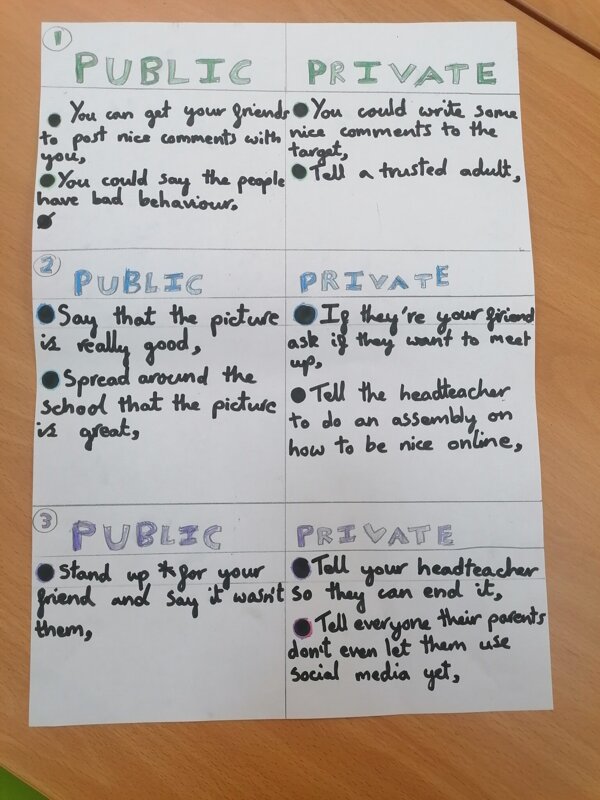 1
PUBLIC
You can get your friends
to post nice comments with
you,
You could say the people
have bad behaviour.
PRIVATE
You could write some
nice comments to the
target,
Tell a trusted adult,
2
PUBLIC
Say that the picture
is really good,
Spread around the
school that the picture
is great,
PRIVATE
If they're your friend
ask if they want to meet
up,
Tell the headteacher
to do an assembly on
how to be nice online,
3
PUBLIC
Stand up *for your
friend and say it wasn't
them,
PRIVATE
Tell your headteacher
so they can end it,
Tell everyone their parents
don't even let them use
social media yet,